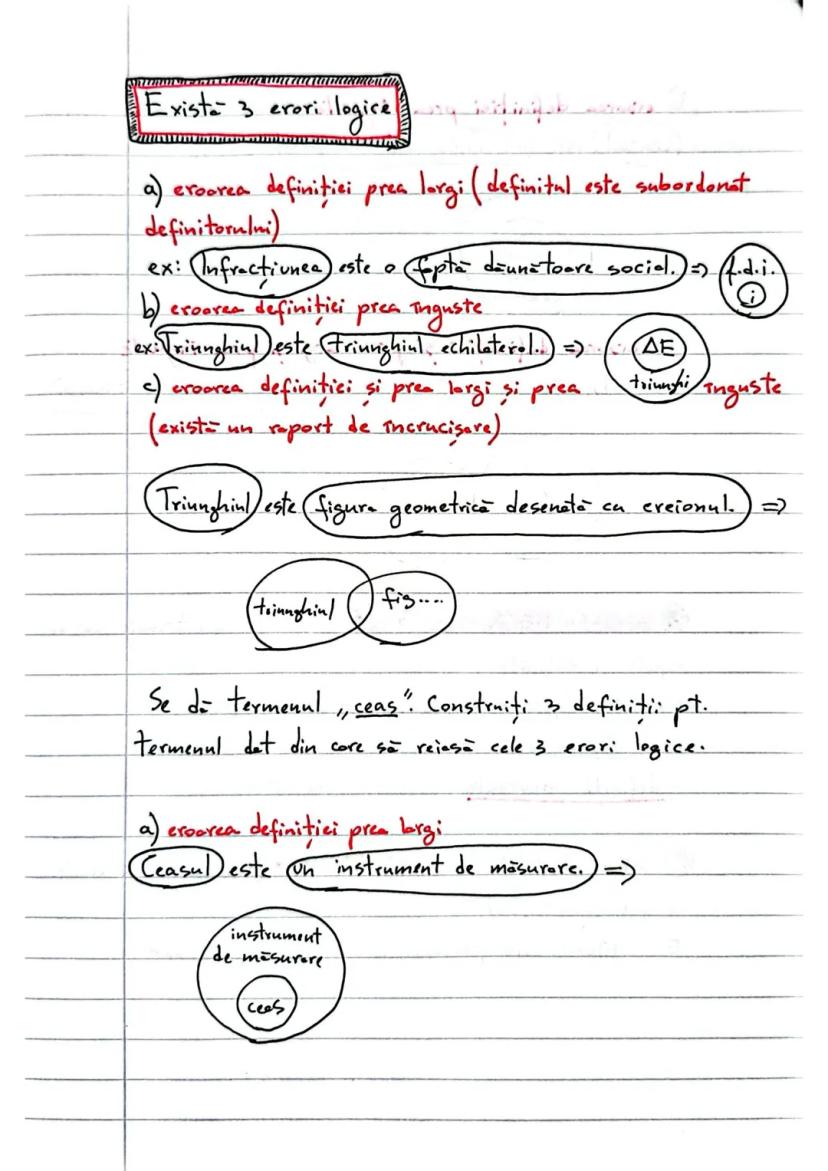 Există 3 erori logice
a) eroarea definiției prea largi (definitul este subordonat
definitorului)
ex: Infracțiunea este o faptă dăunătoare social. => f.d.i.
i
b) eroarea definiției prea înguste
ex: Triunghiul este triunghiul echilateral. => ΔE
triunghi
c) eroarea definiției și prea largi și prea înguste
(există un raport de încrucișare)
Triunghiul este figura geometrică desenată cu creionul. =>
triunghiul fig....
Se dă termenul „ceas". Construiți 3 definiții pt.
termenul dat din care să reiasă cele 3 erori logice.
a) eroarea definiției prea largi
Ceasul este un instrument de măsurare. =>
instrument
de măsurare
ceas